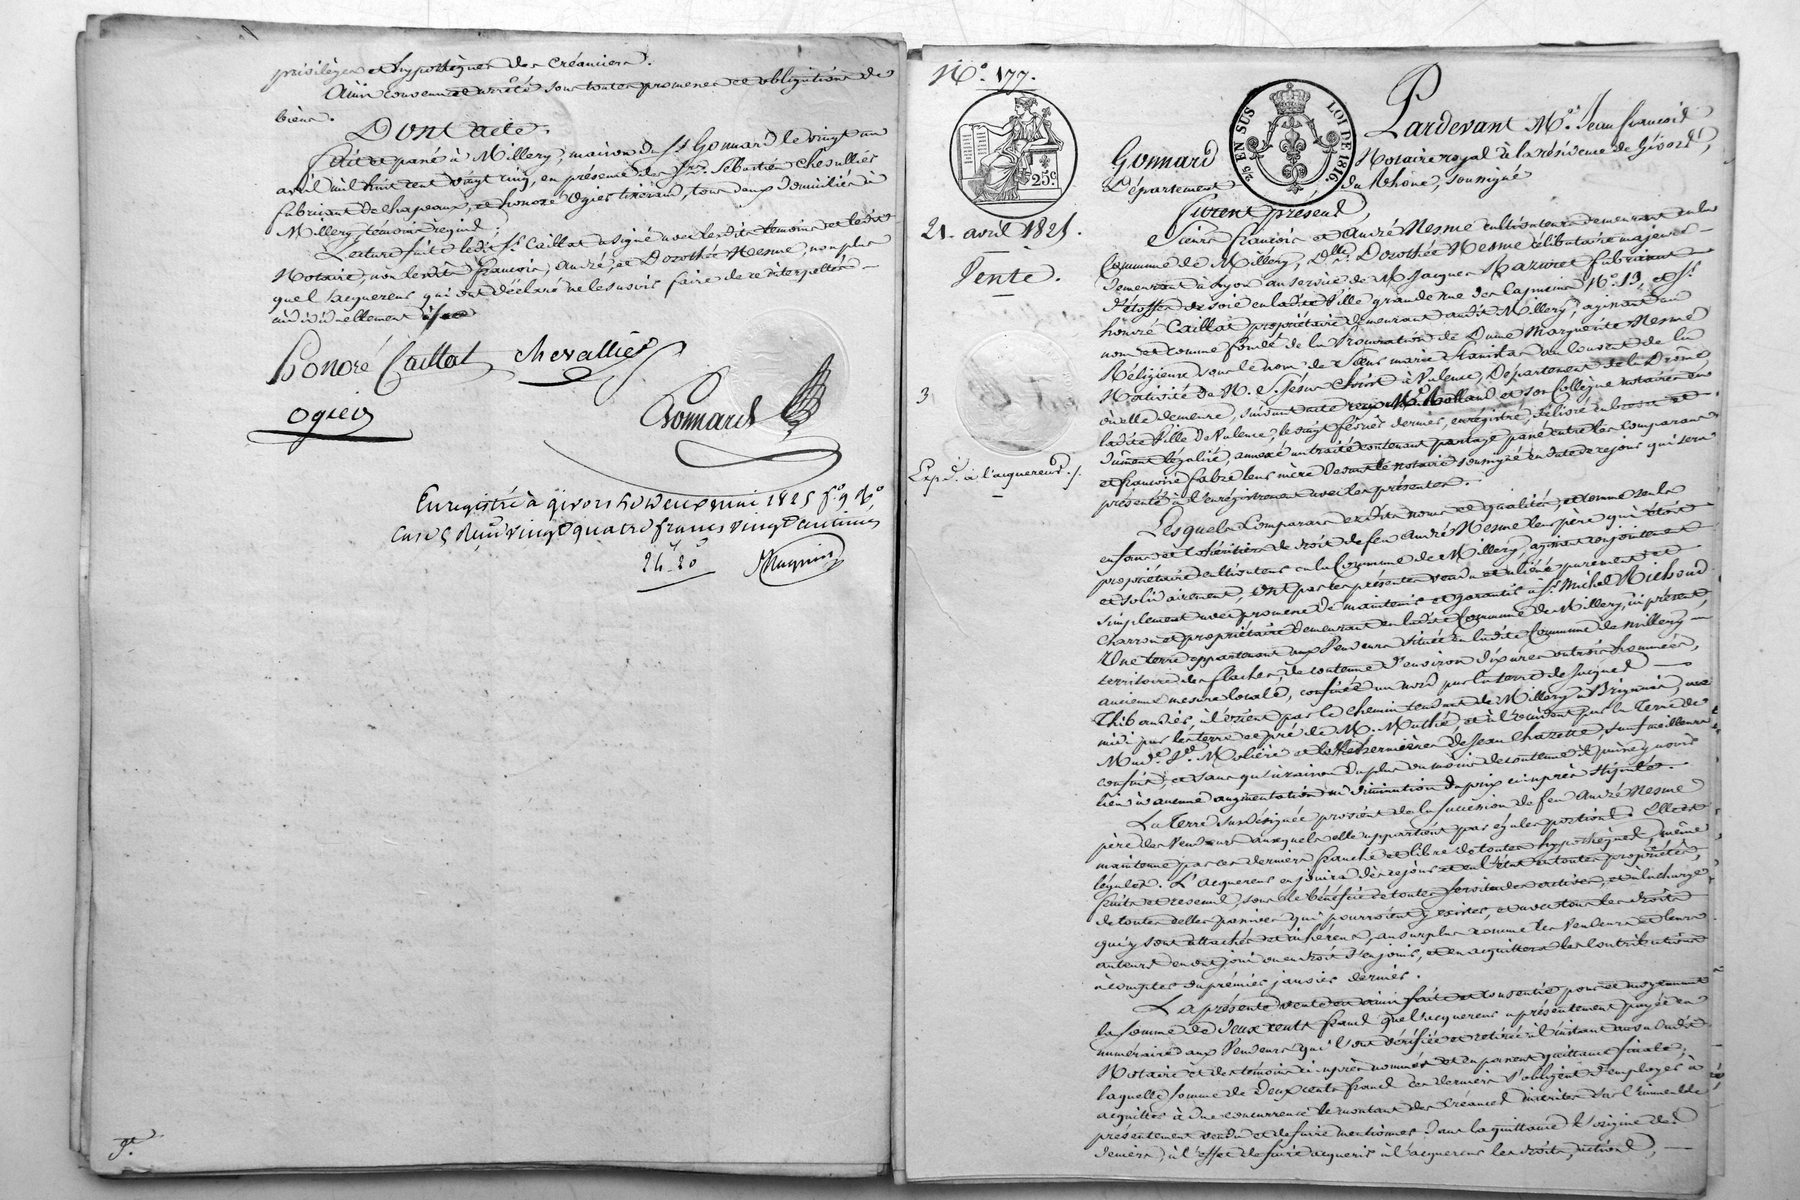 privilèges et hypothèques des créanciers.
Ainsi convenu et arrêté sous toutes promesses et obligations de
biens.
Dont acte,
fait et passé à Millery, maison du Sr Gonnard le vingt un
avril mil huit cent vingt cinq, en présence des Srs Sébastien Chevallier
fabricant de chapeaux, et honoré Ogier tisserand, tous deux domiciliés à
Millery témoins requis;
Lecture faite le dit Sr Caillat a signé avec les dits témoins et le dit
Notaire, non les dits françois, André, et Dorothée Nesme, non plus
que l'acquéreur qui ont déclaré ne le savoir faire de ce interpellés
individuellement
honoré Caillat chevallier
ogier
Gonnard
Enregistré à Givors le deux mai 1825 fo 9 Vo
Case 5 Reçu vingt quatre francs vingt centimes
24. 20
No. 177.
25c
25 EN SUS LOI DE 1816
21. avril 1825.
Vente.
3
Exp.d. à l'acquereur ./.
Pardevant Me. Jean françois
Gonnard Notaire royal à la résidence de Givors,
Département du Rhône, soussigné
furent présens
Sieurs françois et André Nesme cultivateurs demeurant en la
Commune de Millery, Dlle. Dorothée Nesme célibataire majeure
demeurant à Lyon au service de M. Jacques Mazuret fabricant
d'étoffes de soie en la dite Ville grande rue des Capucins No. 13, et Sr.
honoré Caillat propriétaire demeurant au dit Millery, agissant au
nom et comme fondé de la Procuration de Dame Marguerite Nesme
Religieuse sous le nom de Sœur marie Stanislas au Couvent de la
Nativité de N. S. Jésus Christ à Valence, Département de la Drôme
où elle demeure, suivant acte reçu Me. Rolland et son Collègue notaires en
la dite Ville de Valence, le vingt février dernier, enregistré, délivré en brevet et
dûment légalisé, annexé au traité contenant partage passé entre les Comparans
et françoise fabre leur mère devant le notaire soussigné en date de ce jour qui sera
présenté à l'enregistrement avec les présentes.
Lesquels Comparans es dits noms et qualités, et comme seuls
enfans et héritiers de droit de feu André Nesme leur père qui étoit
propriétaire cultivateur en la Commune de Millery, agissant conjointement
et solidairement, ont par ces présentes vendu et aliéné purement et
simplement avec promesse de maintenir et garantir à Sr. Michel Richoud
Charron et propriétaire demeurant en la dite Commune de Millery, ici présent,
Une terre appartenant aux Vendeurs située en la dite Commune de Millery
territoire des flaches, de contenue d'environ dix ares ou trois hommées,
ancienne mesure locale, confinée au nord par la terre de Jacques
Thibaudier, à l'orient par le chemin tendant de Millery à Brignais, au
midi par les terre et pré de M. Mathé, et à l'occident par la Terre de
Mad.e Ve. Molière et de Jean Chazette, sauf meilleurs
confins, et sans qu'à raison du plus ou moins de contenue il puisse y avoir
lieu à aucune augmentation ni diminution du prix ci après stipulé.
La Terre susdésignée provient de la succession de feu André Nesme
père des Vendeurs auxquels elle appartient par égales portions. Elle est
maintenue par ces derniers franche et libre de toutes hypothèques, même
légales. L'acquereur en jouira dès ce jour et en l'état en toute propriété,
fruits et revenus, sous le bénéfice de toutes servitudes actives, et à la charge
de toutes celles passives qui pourroient y exister, et avec tous les droits
qui y sont attachés et inhérens, au surplus comme les Vendeurs et leurs
auteurs en ont joui ou eu droit d'en jouir, et en acquittera les Contributions
à compter du premier janvier dernier.
La présente vente est ainsi faite et consentie pour et moyennant
la somme de deux cents francs que l'acquereur a présentement payée en
numéraire aux Vendeurs qui l'ont vérifiée et retirée à l'instant au vu du dit
Notaire et des témoins ci après nommés et en passent quittance finale,
laquelle somme de deux cents francs ces derniers s'obligent d'employer à
acquitter à due concurrence le montant des créances inscrites sur l'immeuble
présentement vendu et de faire mentionner dans la quittance l'origine des
deniers, à l'effet de faire acquérir à l'acquereur les droits, actions,